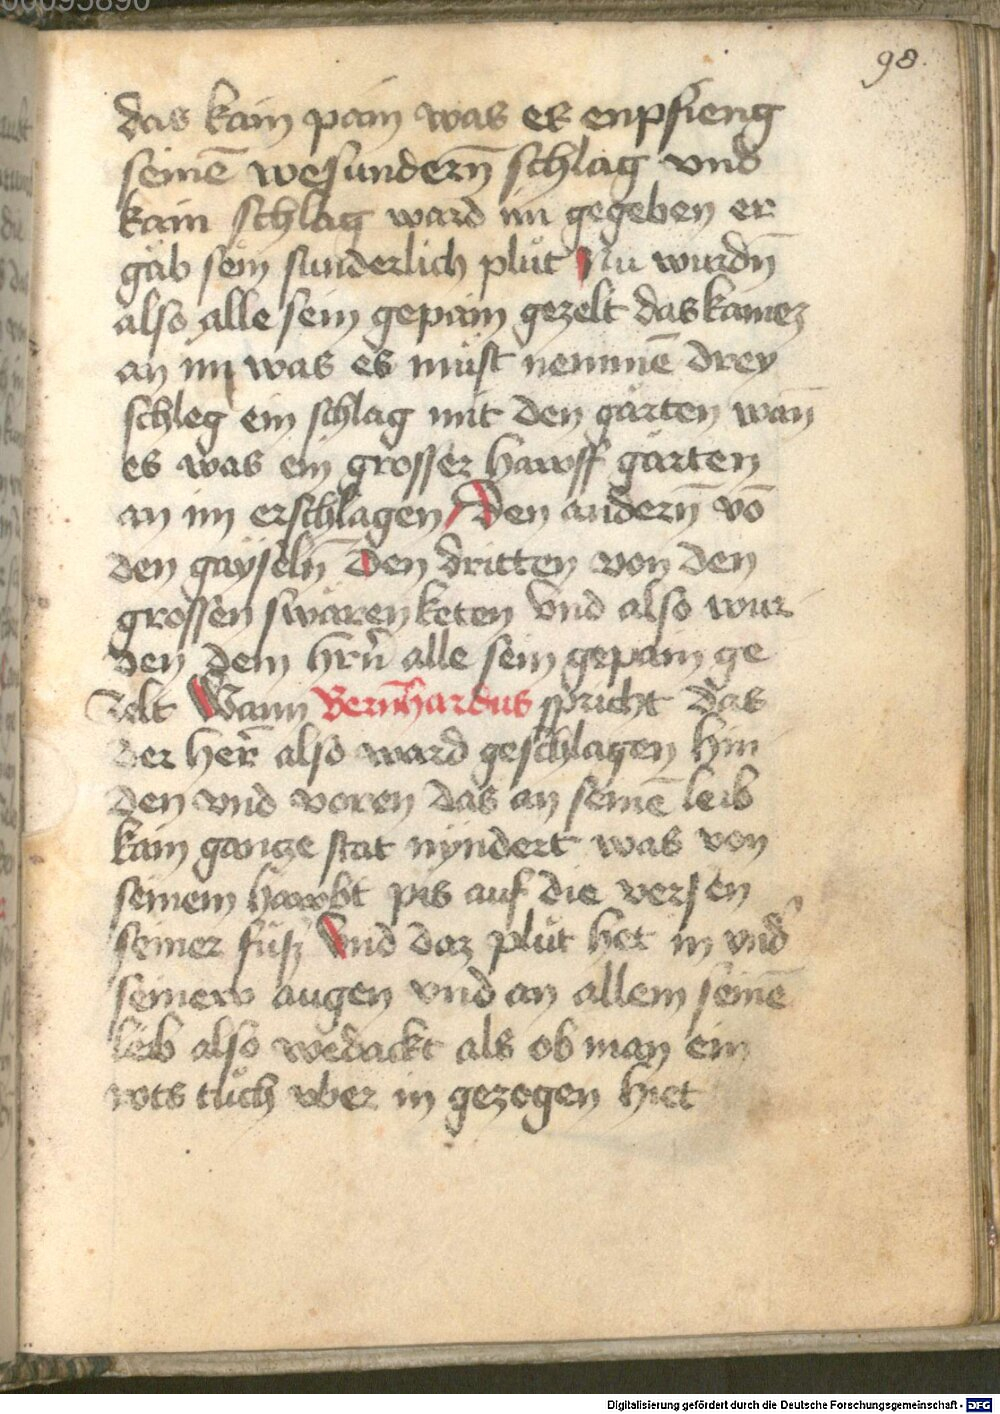 00095890
98.
das kain pain was es enpfieng
seinē wesundern̄ schlag vnd
kain schlag ward im gegeben er
gäb sein sunderlich plůt Nu wurdn̄
also alle sein gepain gezelt das kaines
an im was es můst nemmē drey
schleg ein schlag mit den gärten wan̄
es was ein grosser hawff gärten
an im erschlagen / Den andern̄ vō
den gaÿseln̄ Den dritten von den
grossen swären keten Vnd also wur
den dem hrn̄ alle sein gepain ge
zelt Wann Bernhardus spricht das
der her̄ also ward geschlagen hin
den vnd voren das an seinē leib
kain gancze stat nÿndert was von
seinem hawbt pis auf die versen
seiner füsz Vnd daz plůt het in vnd
seinew augen vnd an allem seinē
leib also wedackt als ob man ein
rots tůch vber in gezogen hiet
Digitalisierung gefördert durch die Deutsche Forschungsgemeinschaft - DFG